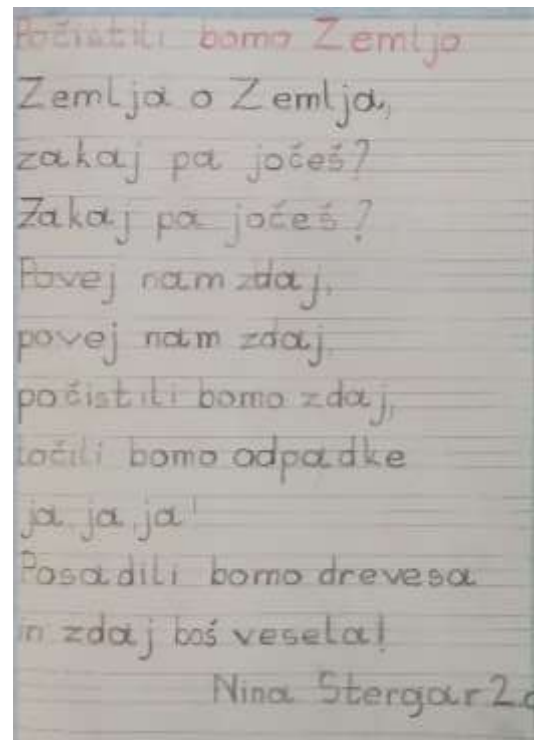 Počistili bomo Zemljo
Zemlja o Zemlja,
zakaj pa jočeš?
Zakaj pa jočeš?
Povej nam zdaj,
povej nam zdaj,
počistili bomo zdaj,
ločili bomo odpadke
ja, ja, ja!
Posadili bomo drevesa
in zdaj boš vesela!
Nina Stergar 2.